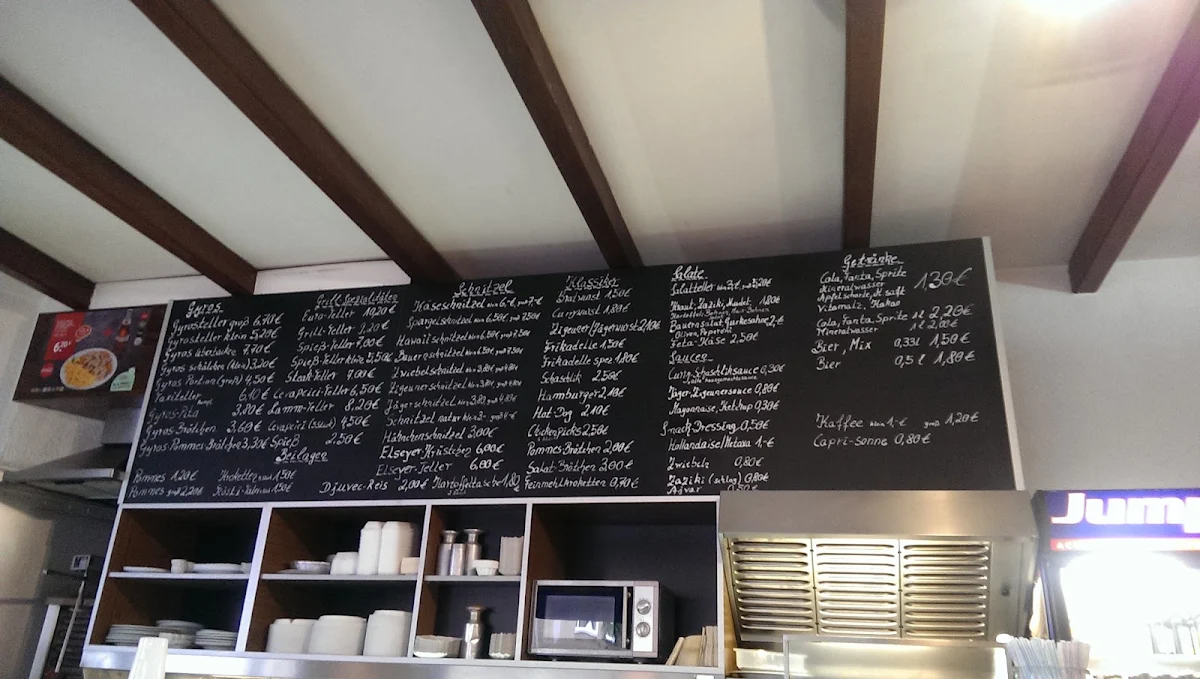 Gyros
Gyrosteller groß 6,70€
Gyrosteller klein 5,20€
Gyros überbacke 7,70€
Gyros schälchen (klein) 3,20€
Gyros Portion (groß) 4,50€
Taxiteller 6,10€
Gyros-Pita 3,80€
Gyros-Brötchen 3,60€
Gyros-Pommes-Brötchen 3,30€
Grill Spezialitäten
Euro-Teller 10,20€
Grill-Teller 9,20€
Spieß-Teller 7,00€
Spieß-Teller klein 5,50€
Steak-Teller 7,00€
Cevapcici-Teller 6,50€
Lamm-Teller 8,20€
Cevapcici (5 stück) 4,50€
Spieß 2,50€
Beilagen
Pommes 1,20€
Pommes groß 2,20€
Kroketten 1,50€
Rösti-Taler 1,50€
Djuvec-Reis 2,00€
Kartoffeltasche 1,80
Schnitzel
Käseschnitzel
Spargelschnitzel
Hawaiischnitzel
Bauernschnitzel
Zwiebelschnitzel
Zigeunerschnitzel
Jägerschnitzel
Schnitzel natur
Hähnchenschnitzel 3,00€
Elseyer Krüstchen 6,00€
Elseyer-Teller 6,00€
Klassiker
Bratwurst 1,50€
Currywurst 1,80€
Zigeuner/Jägerwurst 2,10€
Frikadelle 1,50€
Frikadelle spez. 1,80€
Schaschlik 2,50€
Hamburger 2,10€
Hot-Dog 2,10€
Chicken Picks 2,50€
Pommes-Brötchen 2,00€
Salat-Brötchen 2,00€
Feinmehlkroketten 0,70€
Salate
Salatteller
Kraut, Zaziki, Nudel, 1,80€
Bauernsalat, Gurke, Sahne 2,-€
Oliven, Peperoni
Feta-Käse 2,50€
Saucen
Curry-Schaschliksauce 0,30€
Jäger, Zigeunersauce 0,80€
Mayonnaise, Ketchup 0,30€
Snack Dressing 0,50€
Hollandaise/Metaxa 1,-€
Zwiebeln 0,80€
Zaziki (schlag) 0,80€
Ajvar 0,50€
Getränke
Cola, Fanta, Sprite
Mineralwasser 1,30€
Apfelschorle, O. saft
Vitamalz, Kakao
Cola, Fanta, Sprite 1l 2,20€
Mineralwasser 1l 2,00€
Bier, Mix 0,33l 1,50€
Bier 0,5l 1,80€
Kaffee klein 1,-€ groß 1,20€
Capri-Sonne 0,80€
Jump